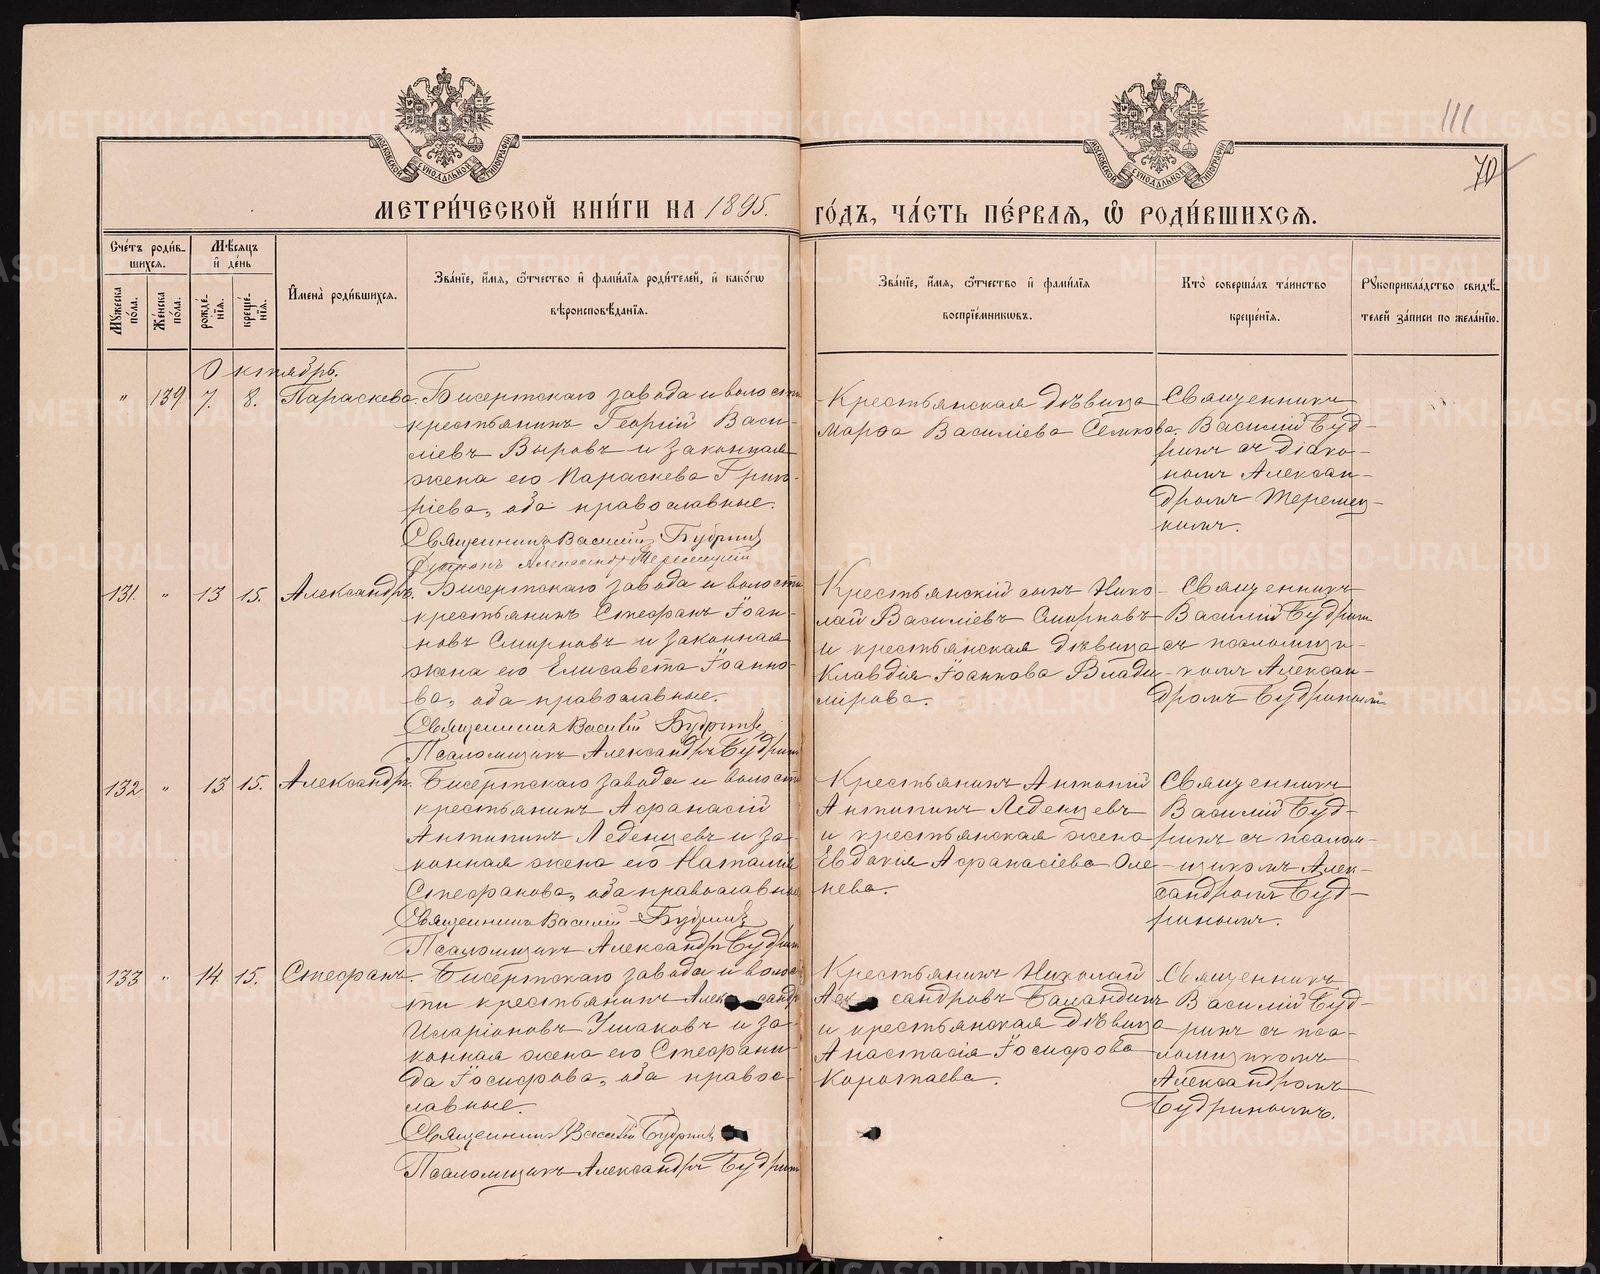 111
70
МЕТРИ́ЧЕСКОЙ КНИ́ГИ НА 1895.
ГО́ДЪ, ЧА́СТЬ ПЕ́РВАѦ, Ѡ҆ РОДИ́ВШИХСѦ.
Сче́тъ роди́в-
шихсѧ.
Мѣ́сѧцъ
и҆ де́нь
Мꙋ́жеска
по́ла.
Же́нска
по́ла.
рожде́-
нїѧ.
креще́-
нїѧ.
И҆мена̀ роди́вшихсѧ.
Зва́нїе, и҆́мѧ, ѻ҆́тчество и҆ фами́лїѧ роди́телей, и҆ како́гѡ
вѣроисповѣ́данїѧ.
Зва́нїе, и҆́мѧ, ѻ҆́тчество и҆ фами́лїѧ
воспрїе́мникѡвъ.
Кто̀ соверша́лъ та́инство
креще́нїѧ.
Рꙋкоприкла́дство свидѣ́-
телей за́писи по жела́нїю.
Октябрь.
" 139 7. 8. Параскева. Бисертскаго завода и волости
крестьянинъ Георгій Васи-
ліевъ Выровъ и законная
жена его Параскева Григо-
ріева, оба православные.
Священникъ Василій Будринъ
Александръ
Крестьянская дѣвица
Марѳа Василіева Семкова.
Священникъ
Василій Буд-
ринъ съ діако-
номъ Алексан-
дромъ
131. " 13 15. Александръ. Бисертскаго завода и волости
крестьянинъ Стефанъ Іоан-
новъ Смирновъ и законная
жена его Елисавета Іоанно-
ва, оба православные.
Священникъ Василій Будринъ
Псаломщикъ Александръ Будринъ
Крестьянскій сынъ Нико-
лай Василіевъ Смирновъ
и крестьянская дѣвица
Клавдія Іоаннова Влади-
мірова.
Священникъ
Василій Будринъ
съ псаломщи-
комъ Алексан-
дромъ Будринымъ
132 " 13 15. Александръ. Бисертскаго завода и волости
крестьянинъ Аѳанасій
Антипинъ Леденцевъ и за-
конная жена его Наталія
Стефанова, оба православные
Священникъ Василій Будринъ
Псаломщикъ Александръ Будринъ
Крестьянинъ Антоній
Антипинъ Леденцевъ
и крестьянская жена
Евдокія Аѳанасіева Оле-
нева.
Священникъ
Василій Буд-
ринъ съ псалом-
щикомъ Алек-
сандромъ Буд-
ринымъ.
133 " 14. 15. Стефанъ. Бисертскаго завода и волос-
ти крестьянинъ Александръ
Иларіоновъ Ушаковъ и за-
конная жена его Стефани-
да Іосифова, оба право-
славные.
Священникъ Василій Будринъ
Псаломщикъ Александръ Будринъ
Крестьянинъ Николай
Александровъ Баландинъ
и крестьянская дѣвица
Анастасія Іосифова
Коротаева.
Священникъ
Василій Буд-
ринъ съ пса-
ломщикомъ
Александромъ
Будринымъ.